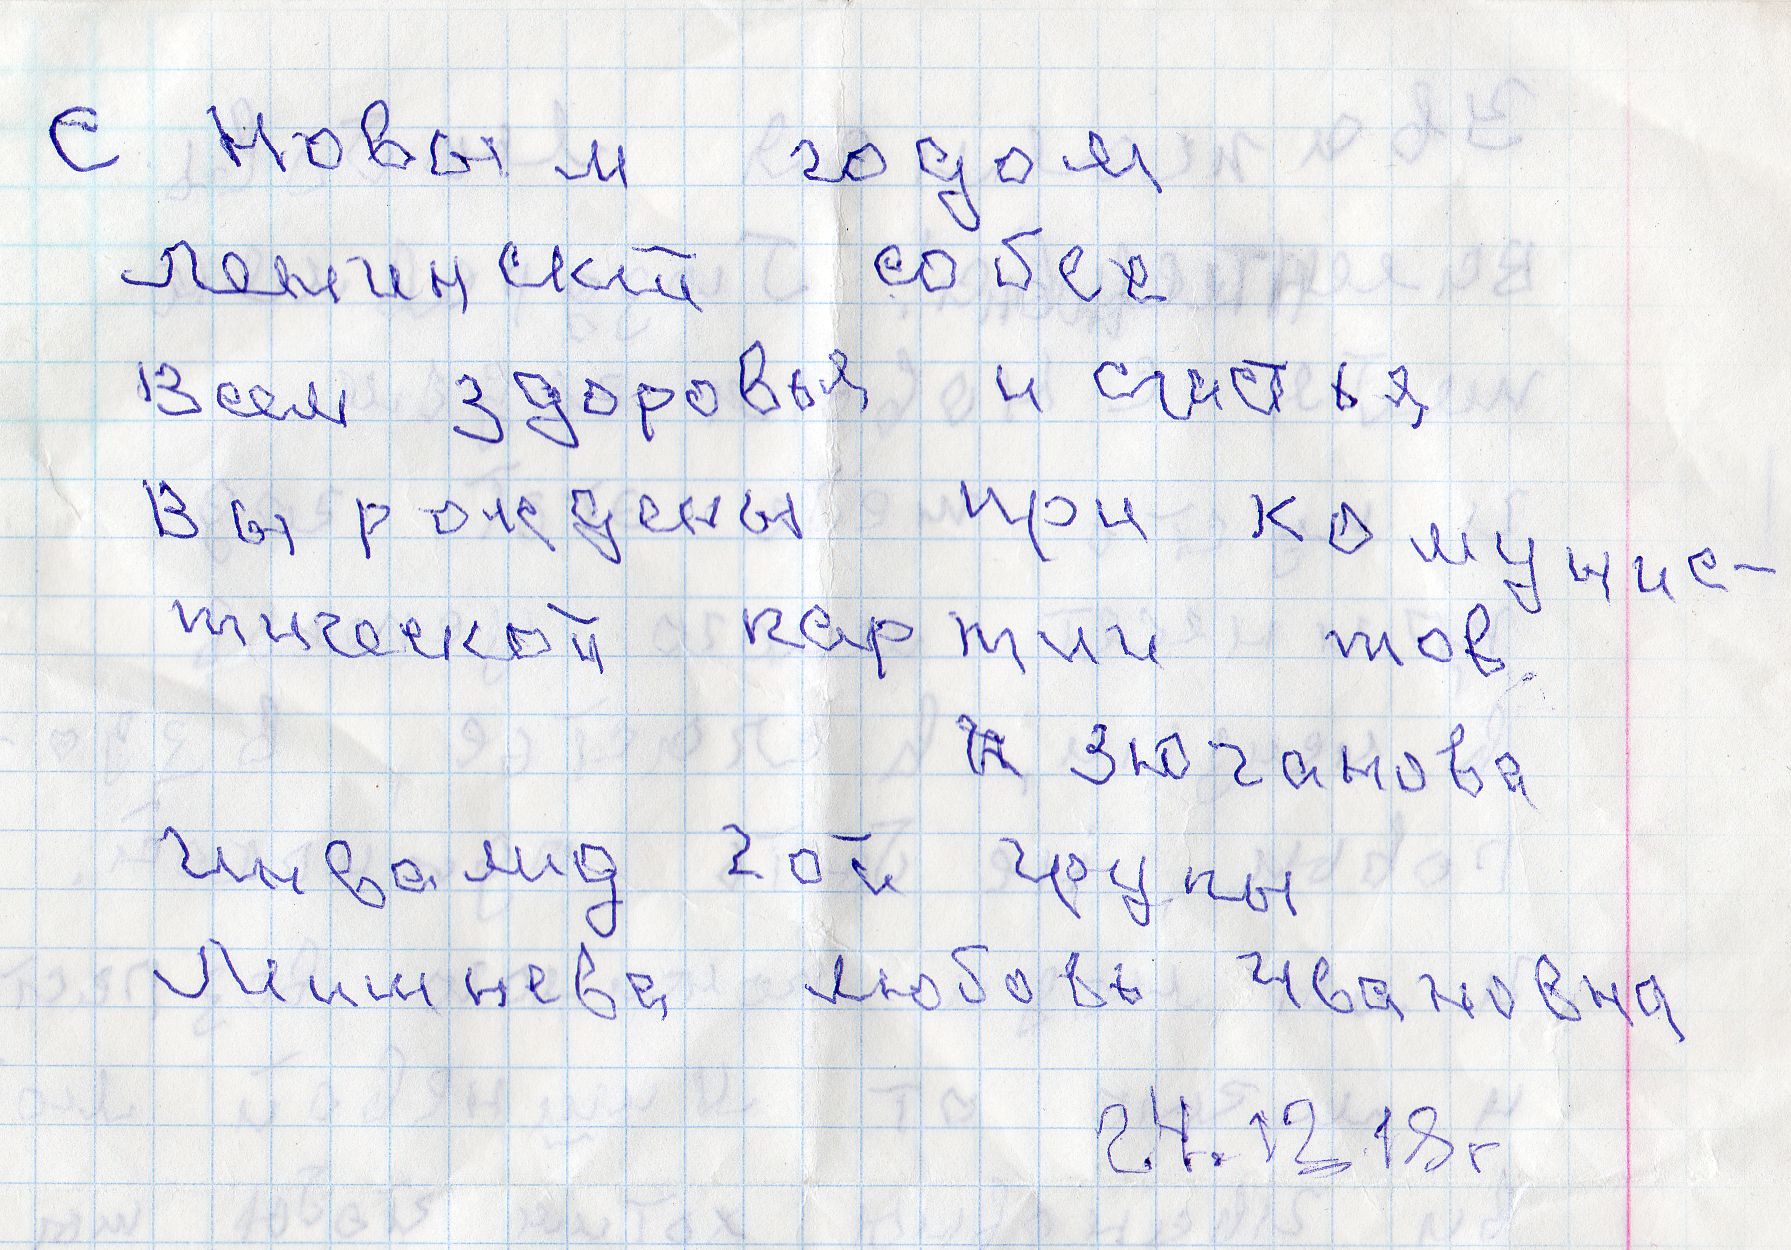 С Новым годом
ленинский собес
Всем здоровья и счастья
Вы рождены при комунис-
тической партии тов
и Зюганова
Инвалид 2ой групы
Лишнева Любовь Ивановна
24.12.18г